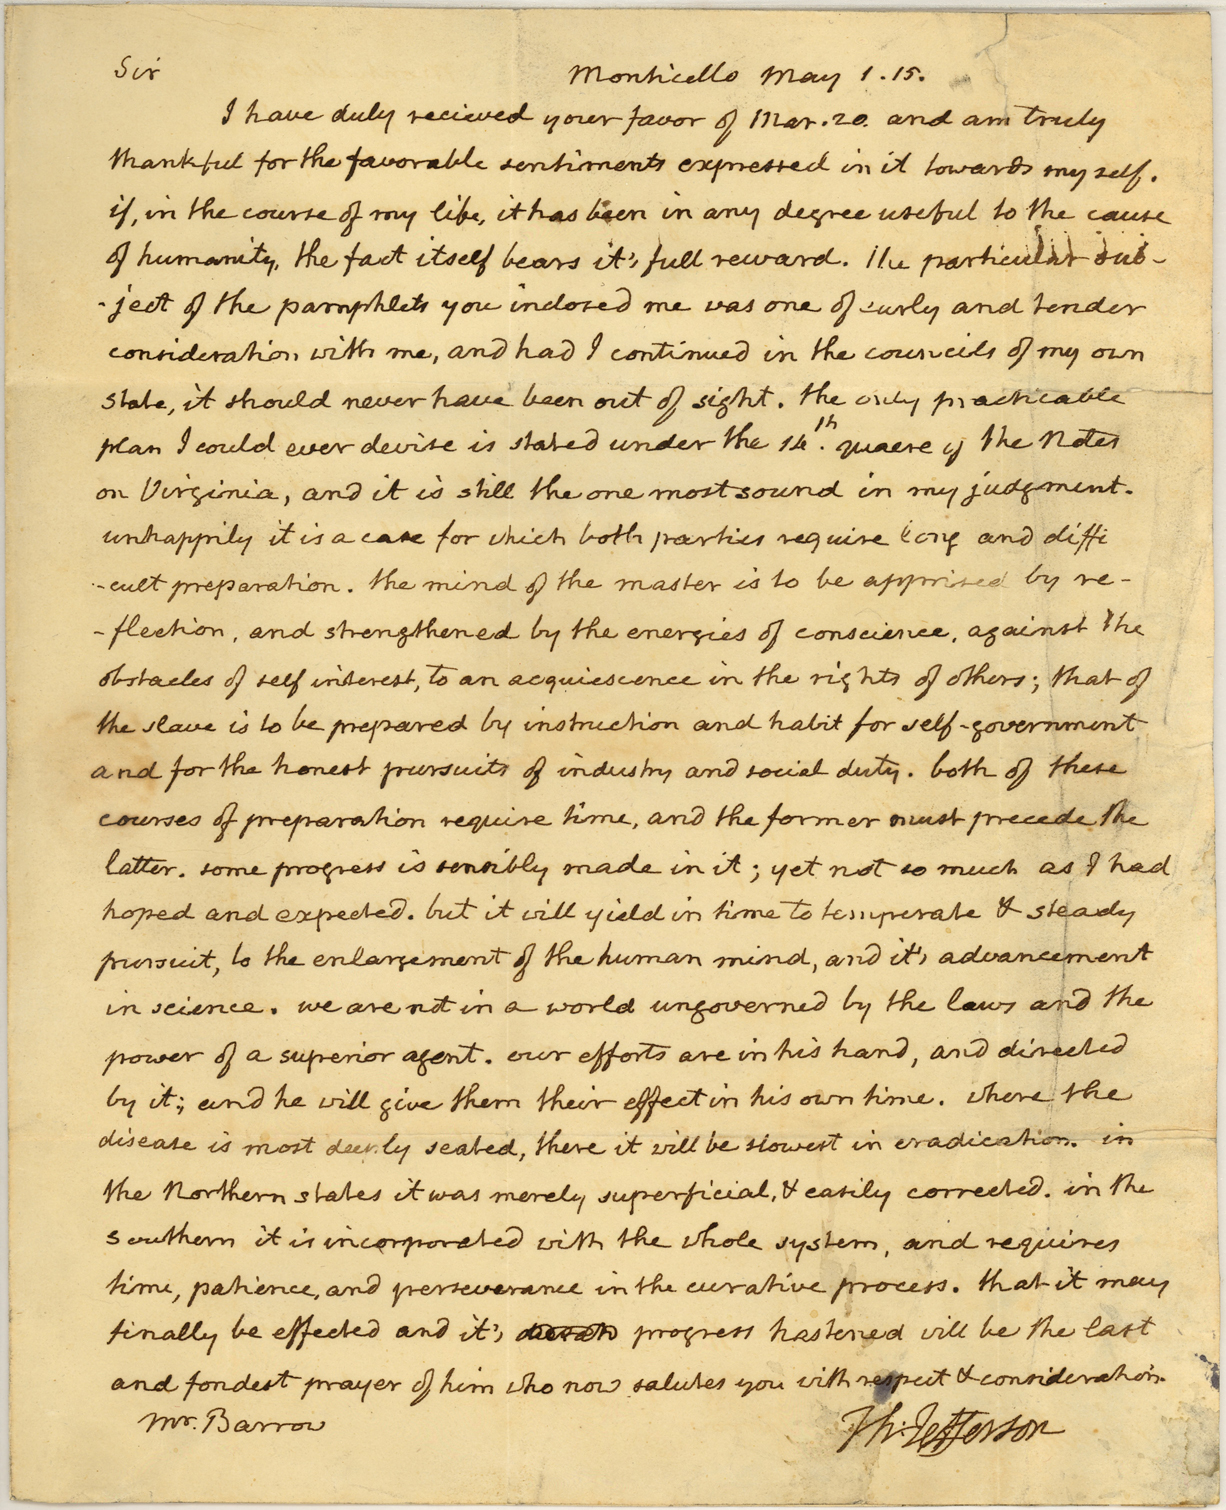 Sir
Monticello May 1. 15.
I have duly recieved your favor of Mar. 20. and am truly
thankful for the favorable sentiments expressed in it towards myself.
if, in the course of my life, it has been in any degree useful to the cause
of humanity, the fact itself bears it's full reward. the particular sub-
-ject of the pamphlets you inclosed me was one of early and tender
consideration with me, and had I continued in the councils of my own
state, it should never have been out of sight. the only practicable
plan I could ever devise is stated under the 14th. quaere of the Notes
on Virginia, and it is still the one most sound in my judgment.
unhappily it is a case for which both parties require long and diffi
-cult preparation. the mind of the master is to be apprised by re-
-flection, and strengthened by the energies of conscience, against the
obstacles of self interest, to an acquiescence in the rights of others; that of
the slave is to be prepared by instruction and habit for self-government
and for the honest pursuits of industry and social duty. both of these
courses of preparation require time, and the former must precede the
latter. some progress is sensibly made in it; yet not so much as I had
hoped and expected. but it will yield in time to temperate & steady
pursuit, to the enlargement of the human mind, and it's advancement
in science. we are not in a world ungoverned by the laws and the
power of a superior agent. our efforts are in his hand, and directed
by it; and he will give them their effect in his own time. where the
disease is most deeply seated, there it will be slowest in eradication. in
the Northern states it was merely superficial, & easily corrected. in the
Southern it is incorporated with the whole system, and requires
time, patience, and perseverance in the curative process. that it may
finally be effected and it's progress hastened will be the last
and fondest prayer of him who now salutes you with respect & consideration.
Mr. Barrow
Th: Jefferson